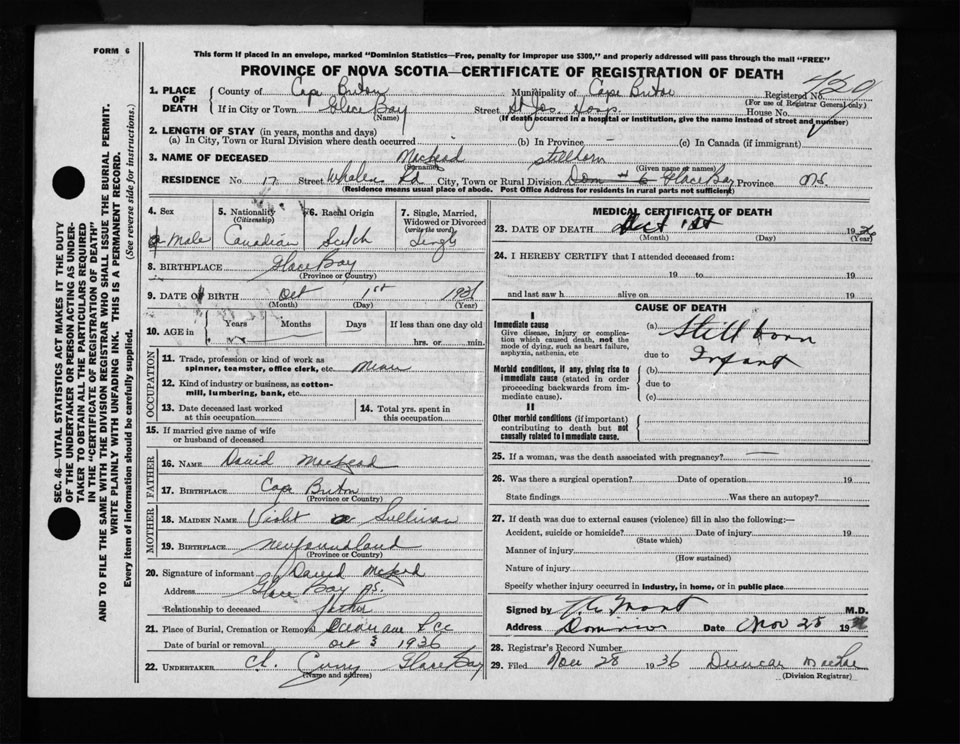 FORM 6
This form if placed in an envelope, marked "Dominion Statistics—Free, penalty for improper use $300," and properly addressed will pass through the mail "FREE"
PROVINCE OF NOVA SCOTIA—CERTIFICATE OF REGISTRATION OF DEATH
SEC. 46—VITAL STATISTICS ACT MAKES IT THE DUTY
OF THE UNDERTAKER OR PERSON ACTING AS UNDER-
TAKER TO OBTAIN ALL THE PARTICULARS REQUIRED
IN THE "CERTIFICATE OF REGISTRATION OF DEATH"
AND TO FILE THE SAME WITH THE DIVISION REGISTRAR WHO SHALL ISSUE THE BURIAL PERMIT.
WRITE PLAINLY WITH UNFADING INK. THIS IS A PERMANENT RECORD.
Every item of information should be carefully supplied. (See reverse side for instructions.)
1. PLACE OF DEATH
County of Cape Breton Municipality of Cape Breton Registered No.
(For use of Registrar General only)
If in City or Town Glace Bay Street St Jos. Hosp. House No.
(Name) (If death occurred in a hospital or institution, give the name instead of street and number)
2. LENGTH OF STAY (in years, months and days)
(a) In City, Town or Rural Division where death occurred (b) In Province (c) In Canada (if immigrant)
3. NAME OF DECEASED MacLeod stillborn
(Surname) (Given name or names)
RESIDENCE No. 17 Street Whalen Rd City, Town or Rural Division Glace Bay Province N.S.
(Residence means usual place of abode. Post Office Address for residents in rural parts not sufficient)
4. Sex Male
5. Nationality (Citizenship) Canadian
6. Racial Origin Scotch
7. Single, Married, Widowed or Divorced (write the word) Single
8. BIRTHPLACE Glace Bay
(Province or Country)
9. DATE OF BIRTH Oct 1st 1936
(Month) (Day) (Year)
10. AGE in Years Months Days If less than one day old
hrs. or min.
OCCUPATION
11. Trade, profession or kind of work as
spinner, teamster, office clerk, etc.
12. Kind of industry or business, as cotton-
mill, lumbering, bank, etc.
13. Date deceased last worked
at this occupation
14. Total yrs. spent in
this occupation
15. If married give name of wife
or husband of deceased
FATHER
16. NAME David MacLeod
17. BIRTHPLACE Cape Breton
(Province or Country)
MOTHER
18. MAIDEN NAME Violet Sullivan
19. BIRTHPLACE Newfoundland
(Province or Country)
20. Signature of informant David McLeod
Address Glace Bay
Relationship to deceased father
21. Place of Burial, Cremation or Removal
Date of burial or removal Oct 3 1936
22. UNDERTAKER Curry Glace Bay
(Name and address)
MEDICAL CERTIFICATE OF DEATH
23. DATE OF DEATH Oct 1st 1936
(Month) (Day)
24. I HEREBY CERTIFY that I attended deceased from:
19 to 19
and last saw h alive on 19
CAUSE OF DEATH
I
Immediate cause
Give disease, injury or complica-
tion which caused death, not the
mode of dying, such as heart failure,
asphyxia, asthenia, etc
(a) Still born
due to Infant
Morbid conditions, if any, giving rise to
immediate cause (stated in order
proceeding backwards from im-
mediate cause).
(b)
due to
(c)
II
Other morbid conditions (if important)
contributing to death but not
causally related to immediate cause.
25. If a woman, was the death associated with pregnancy?
26. Was there a surgical operation? Date of operation 19
State findings Was there an autopsy?
27. If death was due to external causes (violence) fill in also the following:—
Accident, suicide or homicide? Date of injury 19
(State which)
Manner of injury
(How sustained)
Nature of injury
Specify whether injury occurred in industry, in home, or in public place
Signed by M.D.
Address Dominion Date Nov 28 1936
28. Registrar's Record Number
29. Filed Nov 28 1936 Duncan
(Division Registrar)